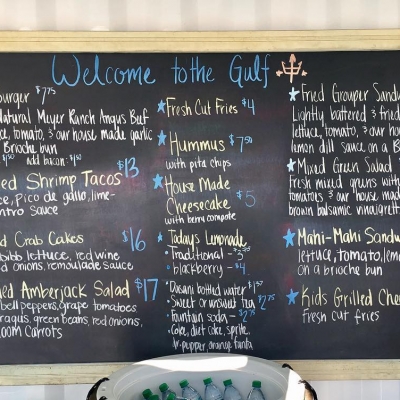 Welcome to the Gulf
burger $7.75
Natural Meyer Ranch Angus Beef
tomato, & our house made garlic
Brioche bun
$1.50 add bacon: $1.50
Shrimp Tacos $13
Pico de gallo, lime-
sauce
Crab Cakes $16
bibb lettuce, red wine
onions, remoulade sauce
Amberjack Salad $17
bell peppers, grape tomatoes
green beans, red onions,
carrots
Fresh Cut Fries $4
Hummus $7.50
with pita chips
House Made
Cheesecake $5
with berry compote
Today's Lemonade
• Traditional -
• blackberry - $4
• Dasani bottled water
• Sweet or unsweet tea $2.75
• Fountain soda - $2.75
Coke, diet coke, sprite,
dr. pepper, orange fanta
Fried Grouper
Lightly battered & fried
lettuce, tomato, & our
lemon dill sauce on a
Mixed Green Salad
Fresh mixed greens with
tomatoes & our house
brown balsamic
Mahi-Mahi
lettuce, tomato,
on a brioche bun
Kids Grilled
Fresh cut fries